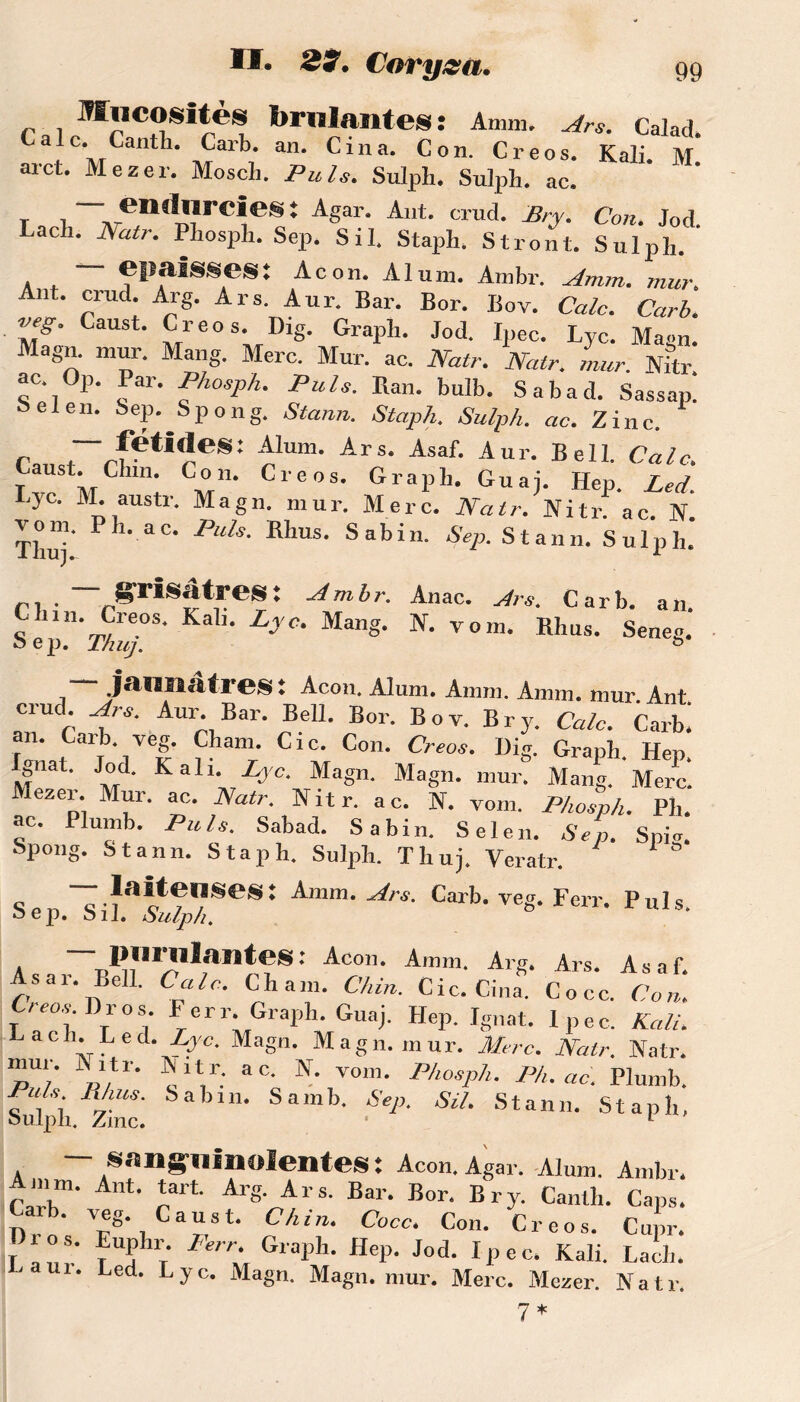 II. 27. Coryza.
99
Mucosités brulantes: Amm. Ars. Calad.
Calc. Canth. Carb. an. Cina. Con. Creos. Kali. M.
arct. Mezer. Mosch. Puls. Sulph. Sulph. ac.
— endurcies: Agar. Ant. crud. Bry. Con. Jod.
Lach. Natr. Phosph. Sep. Sil. Staph. Stront. Sulph.
— epaisses: Acon. Alum. Ambr. Amm. mur.
Ant. crud. Arg. Ars. Aur. Bar. Bor. Bov. Calc. Carb.
veg. Caust. Creos. Dig. Graph. Jod. Ipec. Lyc. Magn.
Magn. mur. Mang. Merc. Mur. ac. Natr. Natr. mur. Nitr.
ac. Op. Par. Phosph. Puls. Ran. bulb. Sabad. Sassap.
Selen. Sep. Spong. Stann. Staph. Sulph. ac. Zinc.
— fétides: Alum. Ars. Asaf. Aur. Bell. Calc.
Caust. Chin. Con. Creos. Graph. Guaj. Hep. Led.
Lyc. M. austr. Magn. mur. Merc. Natr. Nitr. ac. N.
vom. Ph. ac. Puls. Rhus. Sabin. Sep. Stann. Sulph.
Thuj.
— grisâtres: Ambr. Anac. Ars. Carb. an.
Chin. Creos. Kali. Lyc. Mang. N. vom. Rhus. Seneg.
Sep. Thuj.
— jaunâtres: Acon. Alum. Amm. Amm. mur. Ant.
crud. Ars. Aur. Bar. Bell. Bor. Bov. Bry. Calc. Carb.
an. Carb. veg. Cham. Cic. Con. Creos. Dig. Graph. Hep.
Ignat. Jod. Kali. Lyc. Magn. Magn. mur. Mang. Merc.
Mezer. Mur. ac. Natr. Nitr. ac. N. vom. Phosph. Ph.
ac. Plumb. Puls. Sabad. Sabin. Selen. Sep. Spig.
Spong. Stann. Staph. Sulph. Thuj. Veratr.
— laiteuses: Amm. Ars. Carb. veg. Ferr. Puls.
Sep. Sil. Sulph.
— purulantes: Acon. Amm. Arg. Ars. Asaf.
Asar. Bell. Calc. Cham. Chin. Cic. Cina. Cocc. Con.
Creos. Dros. Ferr. Graph. Guaj. Hep. Ignat. Ipec. Kali.
Lach. Led. Lyc. Magn. Magn. mur. Merc. Natr. Natr.
mur. Nitr. Nitr. ac. N. vom. Phosph. Ph. ac. Plumb.
Puls. Rhus. Sabin. Samb. Sep. Sil. Stann. Staph.
Sulph. Zinc.
— sanguinolentes: Acon. Agar. Alum. Ambr.
Amm. Ant. tart. Arg. Ars. Bar. Bor. Bry. Canth. Caps.
Carb. veg. Caust. Chin. Cocc. Con. Creos. Cupr.
Dros. Euphr. Ferr. Graph. Hep. Jod. Ipec. Kali. Lach.
Laur. Led. Lyc. Magn. Magn. mur. Merc. Mezer. Natr.
7 *